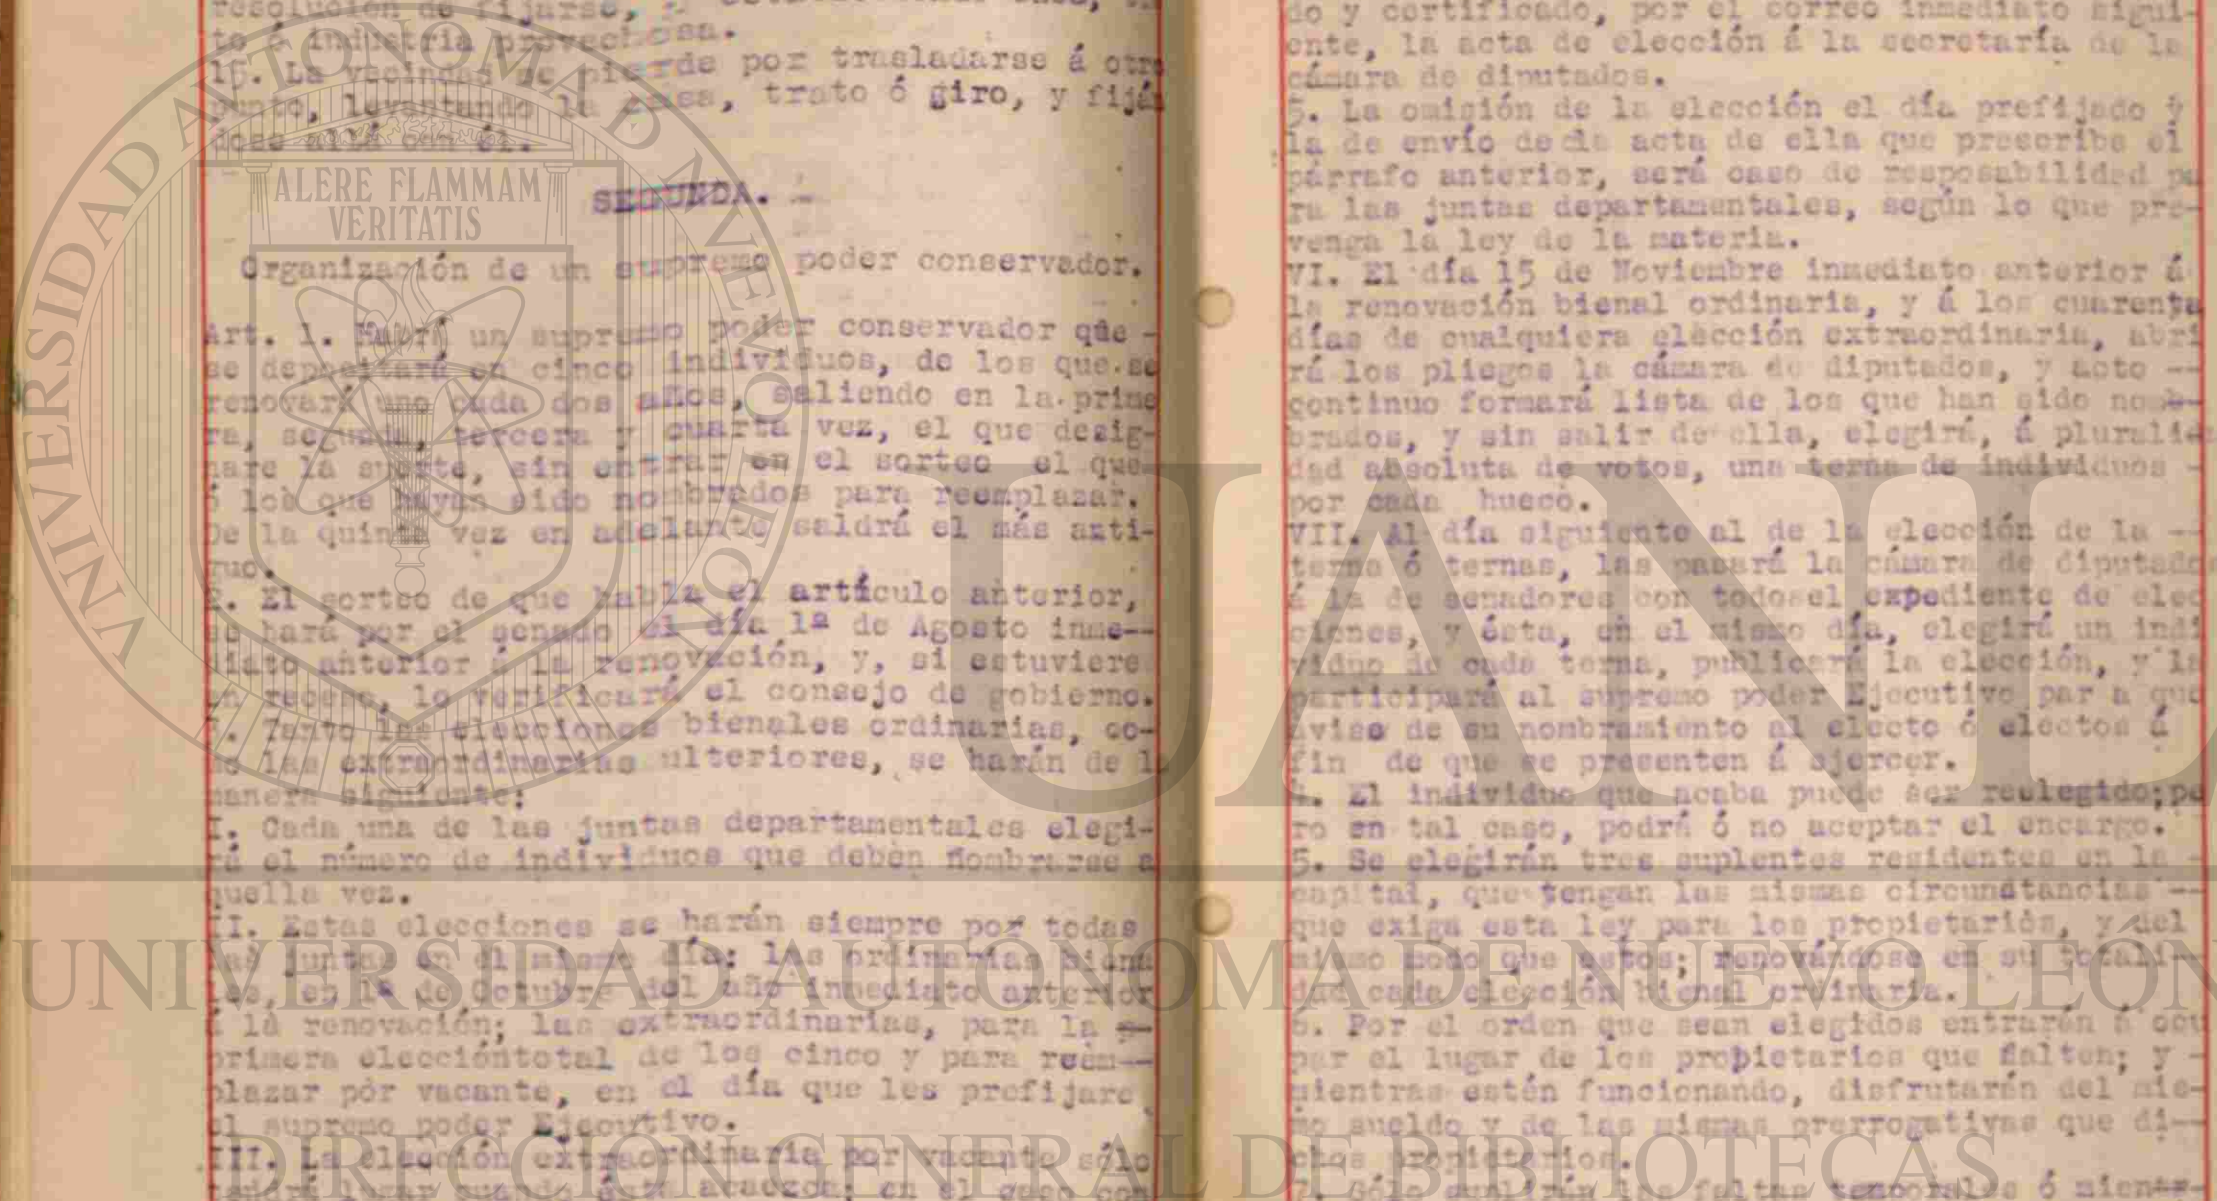 resolución de fijarse,
to ó industria provechosa.
15. La vecindad se pierde por trasladarse á otro
punto, levantando la casa, trato ó giro, y fiján
dose allá con él.
SEGUNDA.
Organización de un supremo poder conservador.
Art. 1. Habrá un supremo poder conservador que -
se depositará en cinco individuos, de los que se
renovará uno cada dos años, saliendo en la prime
ra, segunda, tercera y cuarta vez, el que desig-
nare la suerte, sin entrar en el sorteo el que
ó los que hayan sido nombrados para reemplazar.
De la quinta vez en adelante saldrá el más anti-
guo.
2. El sorteo de que habla el artículo anterior,
se hará por el senado el día 1ª de Agosto inme--
diato anterior á la renovación, y, si estuviere
en receso, lo verificará el consejo de gobierno.
3. Tanto las elecciones bienales ordinarias, co-
mo las extraordinarias ulteriores, se harán de la
manera siguiente:
I. Cada una de las juntas departamentales elegi-
rá el número de individuos que deben nombrarse a
quella vez.
II. Estas elecciones se harán siempre por todas
las juntas en el mismo día: las ordinarias biena
les, en 1ª de Octubre del año inmediato anterior
á la renovación; las extraordinarias, para la
primera eleccióntotal de los cinco y para reem--
plazar por vacante, en el día que les prefijare
el supremo poder Ejecutivo.
III. La elección extraordinaria por vacante sólo
tendrá lugar cuando ésta acaezca; en el caso con
do y certificado, por el correo inmediato sigui-
ente, la acta de elección á la secretaría de la
cámara de diputados.
5. La omisión de la elección el día prefijado y
la de envío de la acta de ella que prescribe el
párrafo anterior, será caso de resposabilidad pa
ra las juntas departamentales, según lo que pre-
venga la ley de la materia.
VI. El día 15 de Noviembre inmediato anterior á
la renovación bienal ordinaria, y á los cuarenta
días de cualquiera elección extraordinaria, abri
rá los pliegos la cámara de diputados, y acto --
continuo formará lista de los que han sido nomb-
brados, y sin salir de ella, elegirá, á pluralid
dad absoluta de votos, una terna de individuos -
por cada hueco.
VII. Al día siguiente al de la elección de la --
terna ó ternas, las pasará la cámara de diputados
á la de senadores con todo el expediente de elec
ciones, y ésta, en el mismo día, elegirá un indi
viduo de cada terna, publicará la elección, y la
participará al supremo poder Ejecutivo par a que
avise de su nombramiento al electo ó electos á
fin de que se presenten á ejercer.
4. El individuo que acaba puede ser reelegido; pe
ro en tal caso, podrá ó no aceptar el encargo.
5. Se elegirán tres suplentes residentes en la -
capital, que tengan las mismas circunstancias --
que exige esta ley para los propietarios, y del
mismo modo que éstos; renovándose en su totali--
dad cada elección bienal ordinaria.
6. Por el orden que sean elegidos entrarán á ocu
par el lugar de los propietarios que falten; y -
mientras estén funcionando, disfrutarán del mis-
mo sueldo y de las mismas prerrogativas que di--
chos propietarios.
7. Sólo suplirán las faltas temporales ó mient-
UNIVERSIDAD AUTÓNOMA DE NUEVO LEÓN
ALERE FLAMMAM
VERITATIS
UANL
UNIVERSIDAD AUTÓNOMA DE NUEVO LEÓN
DIRECCIÓN GENERAL DE BIBLIOTECAS